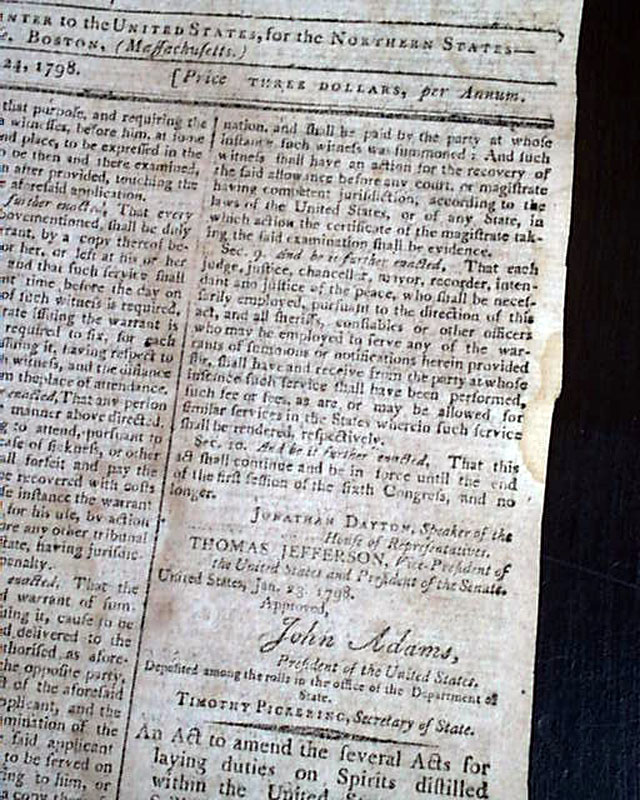 INTER to the UNITED STATES, for the NORTHERN STATES—
BOSTON, (Maſſachuſetts.)
24, 1798.
[Price THREE DOLLARS, per Annum.
that purpoſe, and requiring the
witneſſes, before him, at ſome
nd place, to be expreſſed in the
o be then and there examined,
n after provided, touching the
e aforeſaid application.
further enacted, That every
bovementioned, ſhall be duly
rrant, by a copy thereof be-
or her, or left at his or her
and that ſuch ſervice ſhall
nt time, before the day on
of ſuch witneſs is required,
rate iſſuing the warrant is
required to fix, for each
ſſuing it, having reſpect to
h witneſs, and the diſtance
m the place of attendance.
enacted, That any perſon
manner above directed,
g to attend, purſuant to
caſe of ſickneſs, or other
all forfeit and pay the
be recovered with coſts
ſe inſtance the warrant
for his uſe, by action
ore any other tribunal
ſtate, having juriſdic-
penalty.
enacted, That the
d warrant of ſum-
uing it, cauſe to be
d delivered to the
thoriſed as afore-
the oppoſite party,
ſt of the aforeſaid
pplicant, and the
amination of the
ſaid applicant
to be ſerved on
ring to him, or
a copy
nation, and ſhall be paid by the party at whoſe
inſtance ſuch witneſs was ſummoned: And ſuch
witneſs ſhall have an action for the recovery of
the ſaid allowance before any court, or magiſtrate
having competent juriſdiction, according to the
laws of the United States, or of any State, in
which action the certificate of the magiſtrate tak-
ing the ſaid examination ſhall be evidence.
Sec. 9. And be it further enacted, That each
judge, juſtice, chancellor, mayor, recorder, inten-
dant and juſtice of the peace, who ſhall be neceſ-
ſarily employed, purſuant to the direction of this
act, and all ſheriffs, conſtables or other officers
who may be employed to ſerve any of the war-
rants of ſummons or notifications herein provided
for, ſhall have and receive from the party at whoſe
inſtance ſuch ſervice ſhall have been performed,
ſuch fee or fees, as are, or may be allowed, for
ſimilar ſervices in the States wherein ſuch ſervice
ſhall be rendered, reſpectively.
Sec. 10. And be it further enacted, That this
act ſhall continue and be in force until the end
of the firſt ſeſſion of the ſixth Congreſs, and no
longer.
JONATHAN DAYTON, Speaker of the
Houſe of Repreſentatives.
THOMAS JEFFERSON, Vice-Preſident of
the United States and Preſident of the Senate.
United States, Jan. 23, 1798.
Approved,
John Adams,
Preſident of the United States.
Depoſited among the rolls in the office of the Department of
State.
TIMOTHY PICKERING, Secretary of State.
An Act to amend the ſeveral Acts for
laying duties on Spirits diſtilled
within the United